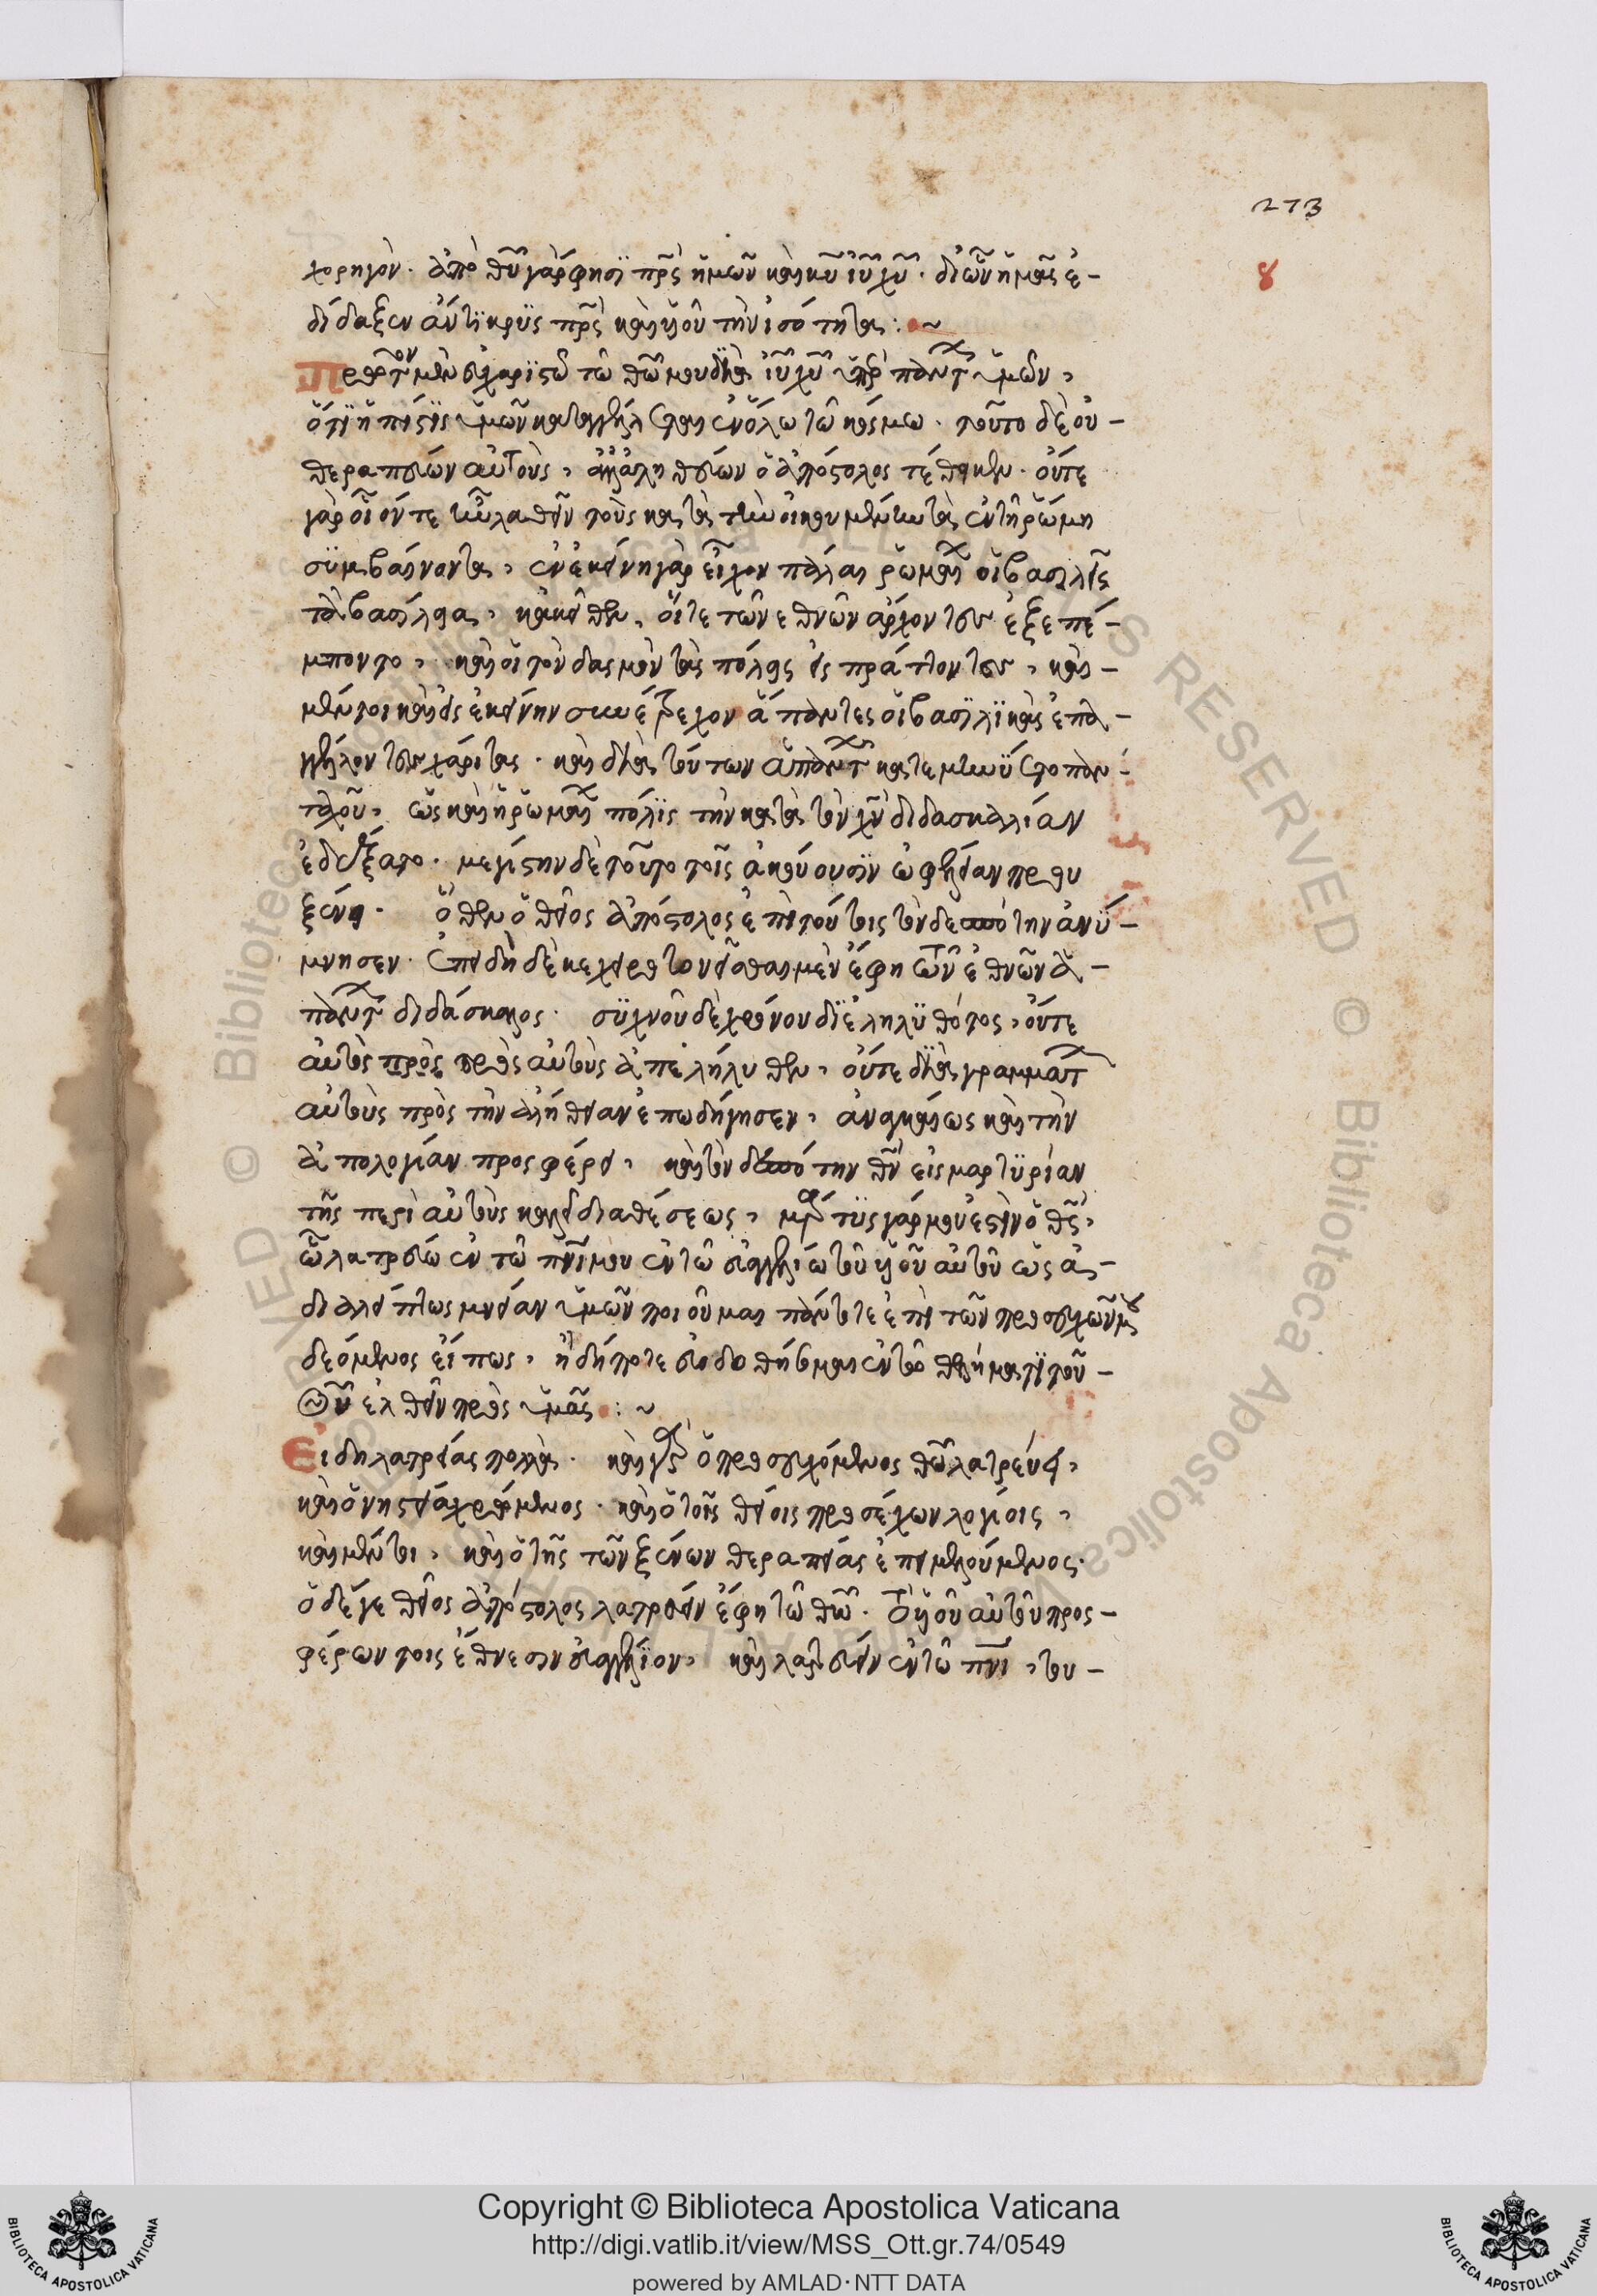 273
8
χορηγὸν. ἀπὸ θῦ γάρ φησὶ πρς ἡμῶν καὶ κῦ ἰῦ χῦ. δι ὧν ἡμᾶς ἐ-
δίδαξεν ἀντικρὺς πρς καὶ υἱοῦ τὴν ἰσότητα:~
Πρῶτον μὲν εὐχαριστῶ τῶ θῶ μου διὰ ἰῦ χῦ ὑπὲρ πάντων ὑμῶν,
ὅτι ἡ πίστις ὑμῶν καταγγέλλεται ἐν ὅλω τῶ κόσμω. τοῦτο δὲ οὐ-
θεραπεύων αὐτοὺς, ἀλλ' ἀληθεύων ὁ ἀπόστολος τέθεικεν. οὔτε
γὰρ οἷόντε ἦν λαθεῖν τοὺς κατὰ τὴν οἰκουμένην τὰ ἐν τῆ ῥώμη
συμβαίνοντα, ἐν ἐκείνη γὰρ εἶχον πάλαι ῥωμαίων οἱ βασιλεῖς
τὰ βασίλεια, κἀκεῖθεν, οἵτε τῶν ἐθνῶν ἄρχοντες ἐξεπέ-
μποντο, καὶ οἱ τὸν δασμὸν τὰς πόλεις εἰσπράττοντες, καὶ-
μέντοι καὶ εἰς ἐκείνην συνέτρεχον ἅπαντες οἱ βασιλικὰς ἐπα-
γγέλλοντες χάριτας. καὶ διὰ τούτων ἁπάντων κατεμηνύετο παν-
ταχοῦ, ὡς καὶ ἡ ῥωμαίων πόλις τὴν κατὰ τὸν χν διδασκαλίαν
ἐδέξατο. μεγίστην δὲ τοῦτο τοῖς ἀκούουσιν ὠφέλειαν πρου
ξένει. ὅθεν ὁ θεῖος ἀπόστολος ἐπὶ τούτοις τὸν δεσπότην ἀνύ-
μνησεν. Ἐπειδὴ δὲ κεχειροτονεῖσθαι μὲν ἔφη τῶν ἐθνῶν ἁ-
πάντων διδάσκαλος. συχνοῦ δὲ χρόνου διεληλυθότος, οὔτε
αὐτὸς πρὸς πρὸς αὐτοὺς ἀπελήλυθεν, οὔτε διὰ γραμμάτων
αὐτοὺς πρὸς τὴν ἀλήθειαν ἐπωδήγησεν, ἀναγκαίως καὶ τὴν
ἀπολογίαν προσφέρει, καὶ τὸν δεσπότην θν εἰς μαρτυρίαν
τῆς περὶ αὐτοὺς καλεῖ διαθέσεως, μάρτυς γάρ μου ἐστὶν ὁ θς,
ὧ λατρεύω ἐν τῶ πνι μου ἐν τῶ εὐαγγελίω τοῦ υἱοῦ αὐτοῦ ὡς ἀ-
διαλείπτως μνείαν ὑμῶν ποιοῦμαι πάντοτε ἐπὶ τῶν προσευχῶν μου
δεόμενος εἴ πως, ἤδη ποτε εὐοδωθήσομαι ἐν τῶ θελήματι τοῦ-
Θῦ ἐλθεῖν πρὸς ὑμᾶς:~
Εἴδη λατρείας πολλὰ. καὶ γὰρ ὁ προσευχόμενος θῶ λατρεύει,
καὶ ὁ νηστεία χρώμενος. καὶ ὁ τοῖς θείοις προσέχων λογίοις,
καὶ μέντοι, καὶ ὁ τῆς τῶν ξένων θεραπείας ἐπιμελούμενος.
ὁ δέ γε θεῖος ἀπόστολος λατρεύειν ἔφη τῶ θῶ. τὸ υἱοῦ αὐτοῦ προσ-
φέρων τοις ἔθνεσιν εὐαγγέλιον, καὶ λατρεύειν ἐν τῶ πνι, του-
Copyright © Biblioteca Apostolica Vaticana
http://digi.vatlib.it/view/MSS_Ott.gr.74/0549
powered by AMLAD·NTT DATA